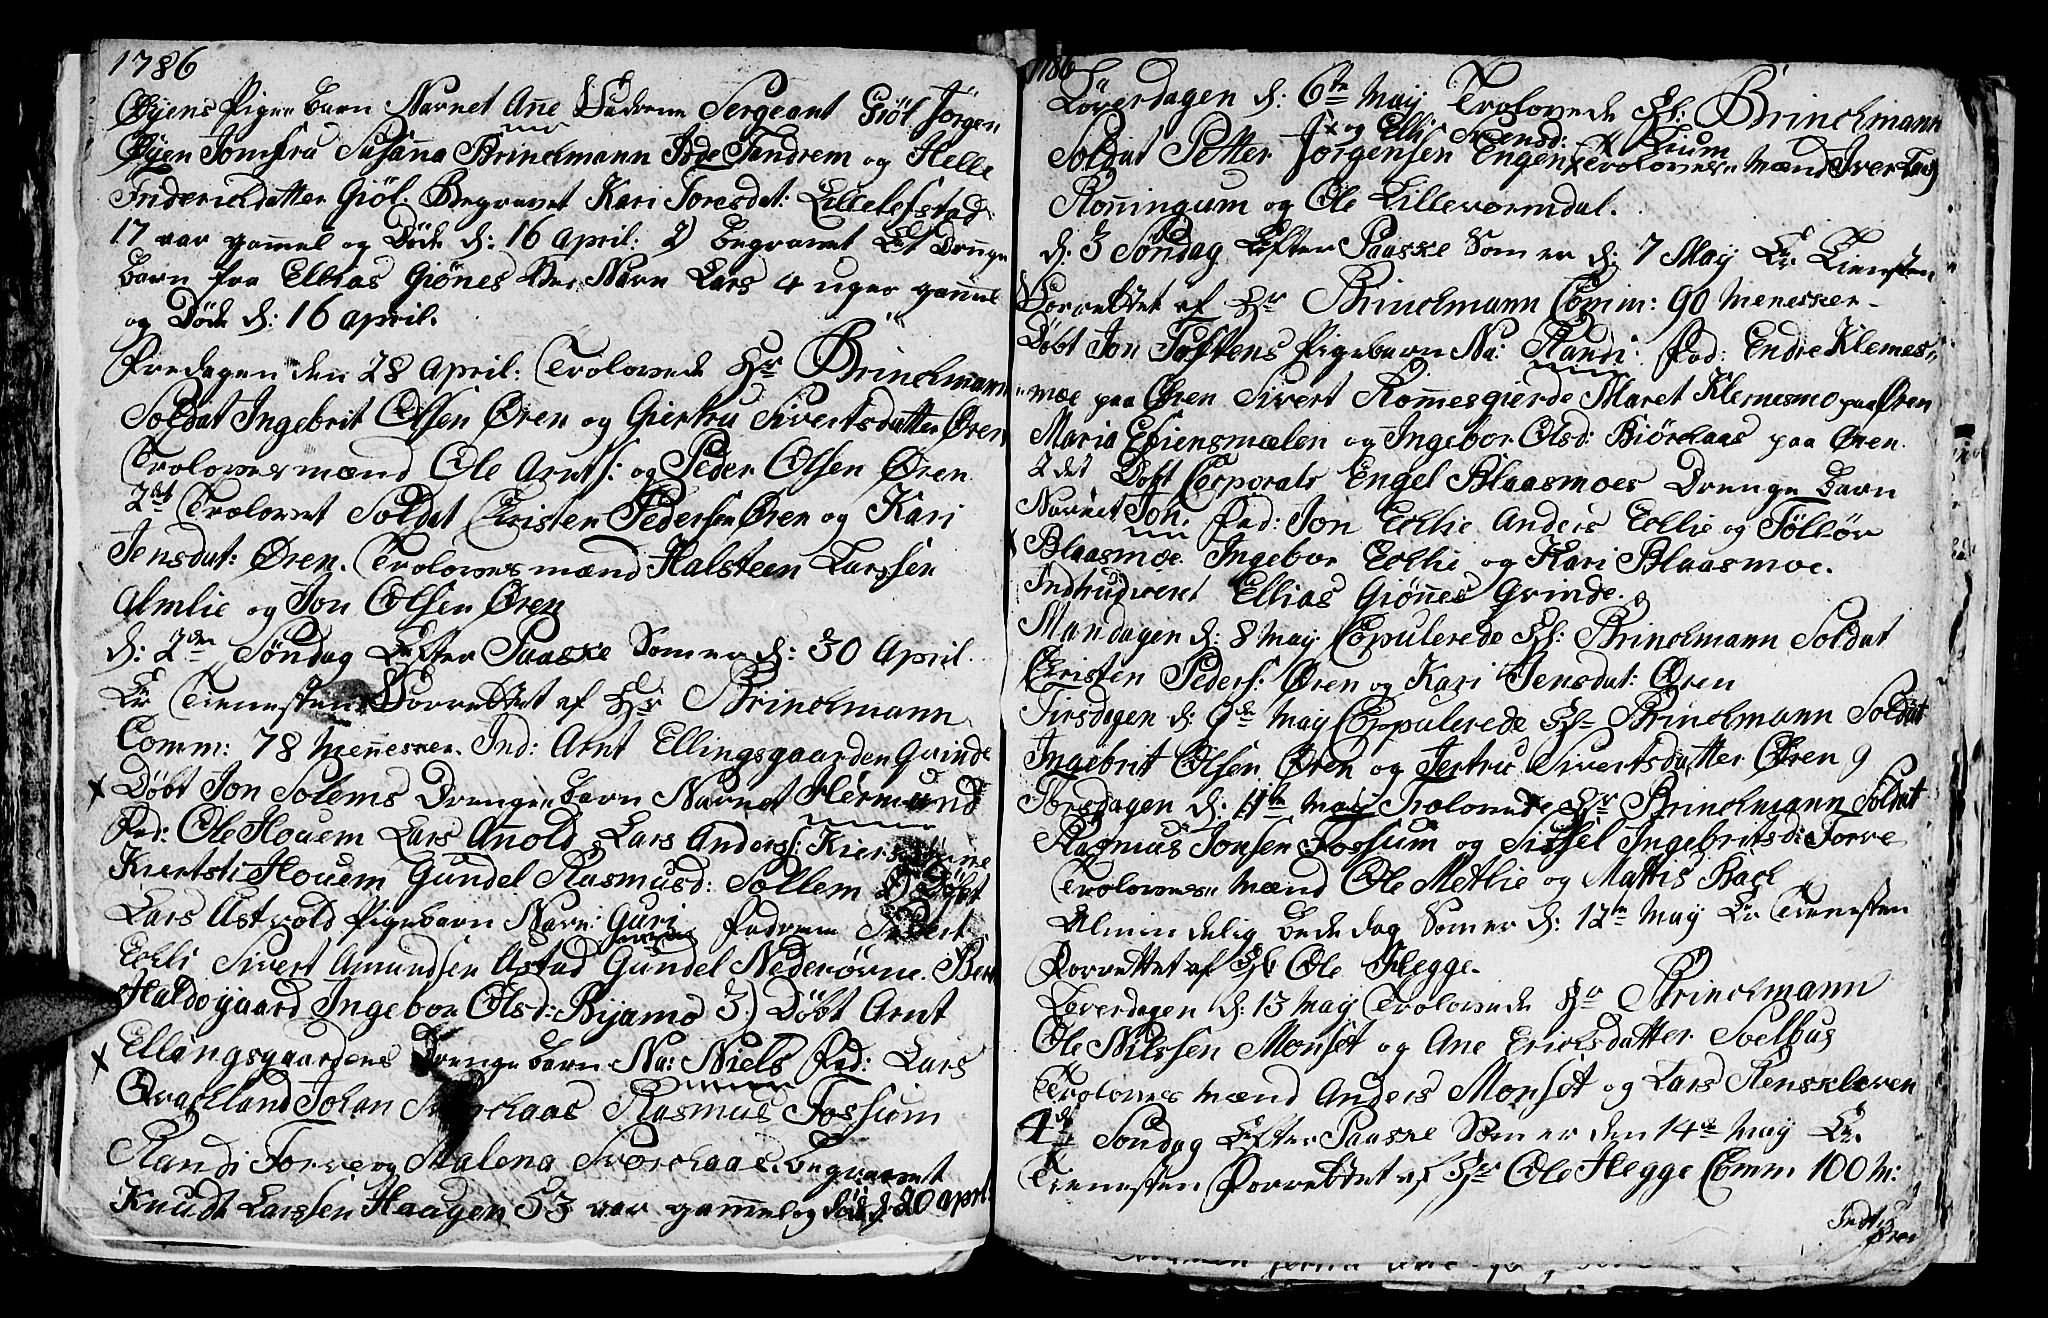 1786
Øyens Pige barn Navnet Añe Fadrene Sergeant Giöl Jörgen
Øyen Jomfru Susaña Brinchmann Tandrem og Helle
Inderichdatter Giöl. Begravet Kari Toresdat: Lillelefstad
17 aar gammel og Döde d: 16 April: 2) begravet Et Drenge
barn fra Ellias Giönes Ved Navn Lars 4 uger gaml
og Döde d: 16 April.
Fredagen den 28 April: Trolovede Hr Brinchmann
Soldat Ingebrit Olsen Øren og Giertru Sivertsdatter Øren
Trolovesmænd Ole Arnts: og Peder Olsen Øren
2det Trolovet Soldat Christen Pedersen Øren og Kari
Jensdat: Øren. Trolovesmænd Halsteen Larssen
Almlie og Jon Olsen Øren
d: 2den Söndag Efter Paaske Som er d: 30 April.
Er Tienesten Forrettet af Hr Brinchmann
Comm: 78 Mennesker. Ind: Arnt Ellingsgaarden Qvinde
Döbt Jon Solems Drenge barn Navnet Hermund
Fad: Ole Houem Lars Añold Lars Anders:
Kiersti Houem Gundel Rasmusd: Sollem 2) Döbt
Lars Astvold Pigebarn Navn: Guri Fadrene Sivert
Eolli Sivert Amundsen Astad Gundel Nederövne. Berit
Haldogaard Ingebor Olsd: Byamo 3) Döbt Arnt
Ellingsgaardens Drenge barn Na: Niels Fad: Lars
Qvachland Johan Rasmus Fossum
Randi Torve og Malena Svorchaas. begravet
Knudt Larssen Haagen 53 aar gammel og död d: 20 April
1786
Löverdagen d: 6te May Trolovede Hr: Brinchmann
Soldat Petter Jörgensen Engen og Elli Svensd: Lium Troloves Mænd Iver
Roñingum og Ole Lillevormdal.
d: 3 Söndag Efter Paaske Som er d: 7 May Er Tiensten
Forrettet af Hr Brinchmann Comm: 90 Mennesker
Döbt Jon Toftens Pigebarn Na: Randi. Fad: Endre Klemes
moe paa Øren Sivert Romesgierde Maret Klemesmo paa Øren
Maria Estensmælen og Ingebor Olsd: Biörchaas paa Øren.
2det Döbt Corporals Engel Blaasmoes Drenge barn
Navnet Jon. Fad: Jon Eollie Anders Eollie og Töllöv
Blaasmoe. Ingebor Eollie og Kari Blaasmoe.
Indtrudveret Ellias Giönes Qvinde.
Mandagen d: 8 May Copulerede Hr: Brinchmann Soldat
Christen Peders: Øren og Kari Jensdat: Øren
Tirsdagen d: 9de May Copulerede Hr Brinchmann Soldat
Ingebrit Olsen Øren og Jertru Sivertsdatter Øren
Torsdagen d: 11te May Trolovede Hr Brinchmann Soldat
Rasmus Jonsen Fossum og Sissel Ingebritsd: Torve
Troloves Mænd Ole Metlie og Mattis Bach
Almindelig bededag Som er d: 12te May Er Tienesten
Forrettet af Hr Ole Hegge.
Löverdagen d: 13 May Trolovede Hr Brinchmann
Ole Nilssen Monset og Ane Ericksdatter Solhus
Troloves mænd Anders Monset og Lars Renskleven
4de Söndag Efter Paaske Som er den 14de May Er
Tienesten Forrettet af Hr Ole Hegge Comm 100 M: